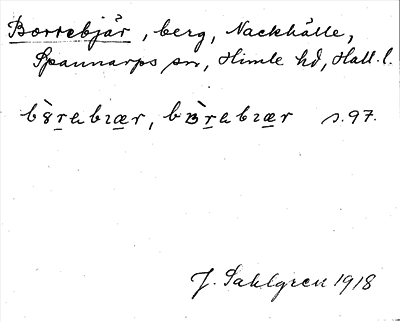 Borrebjär, berg, Nackhälle,
Spannarps sn, Himle hd, Hall. l.
s. 97.
J. Sahlgren 1918